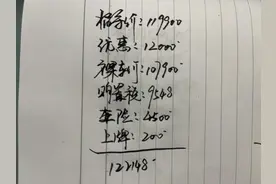 指导价:119900
优惠:12000
裸车价:107900
购置税:9548
车险:4500
上牌:200
122148